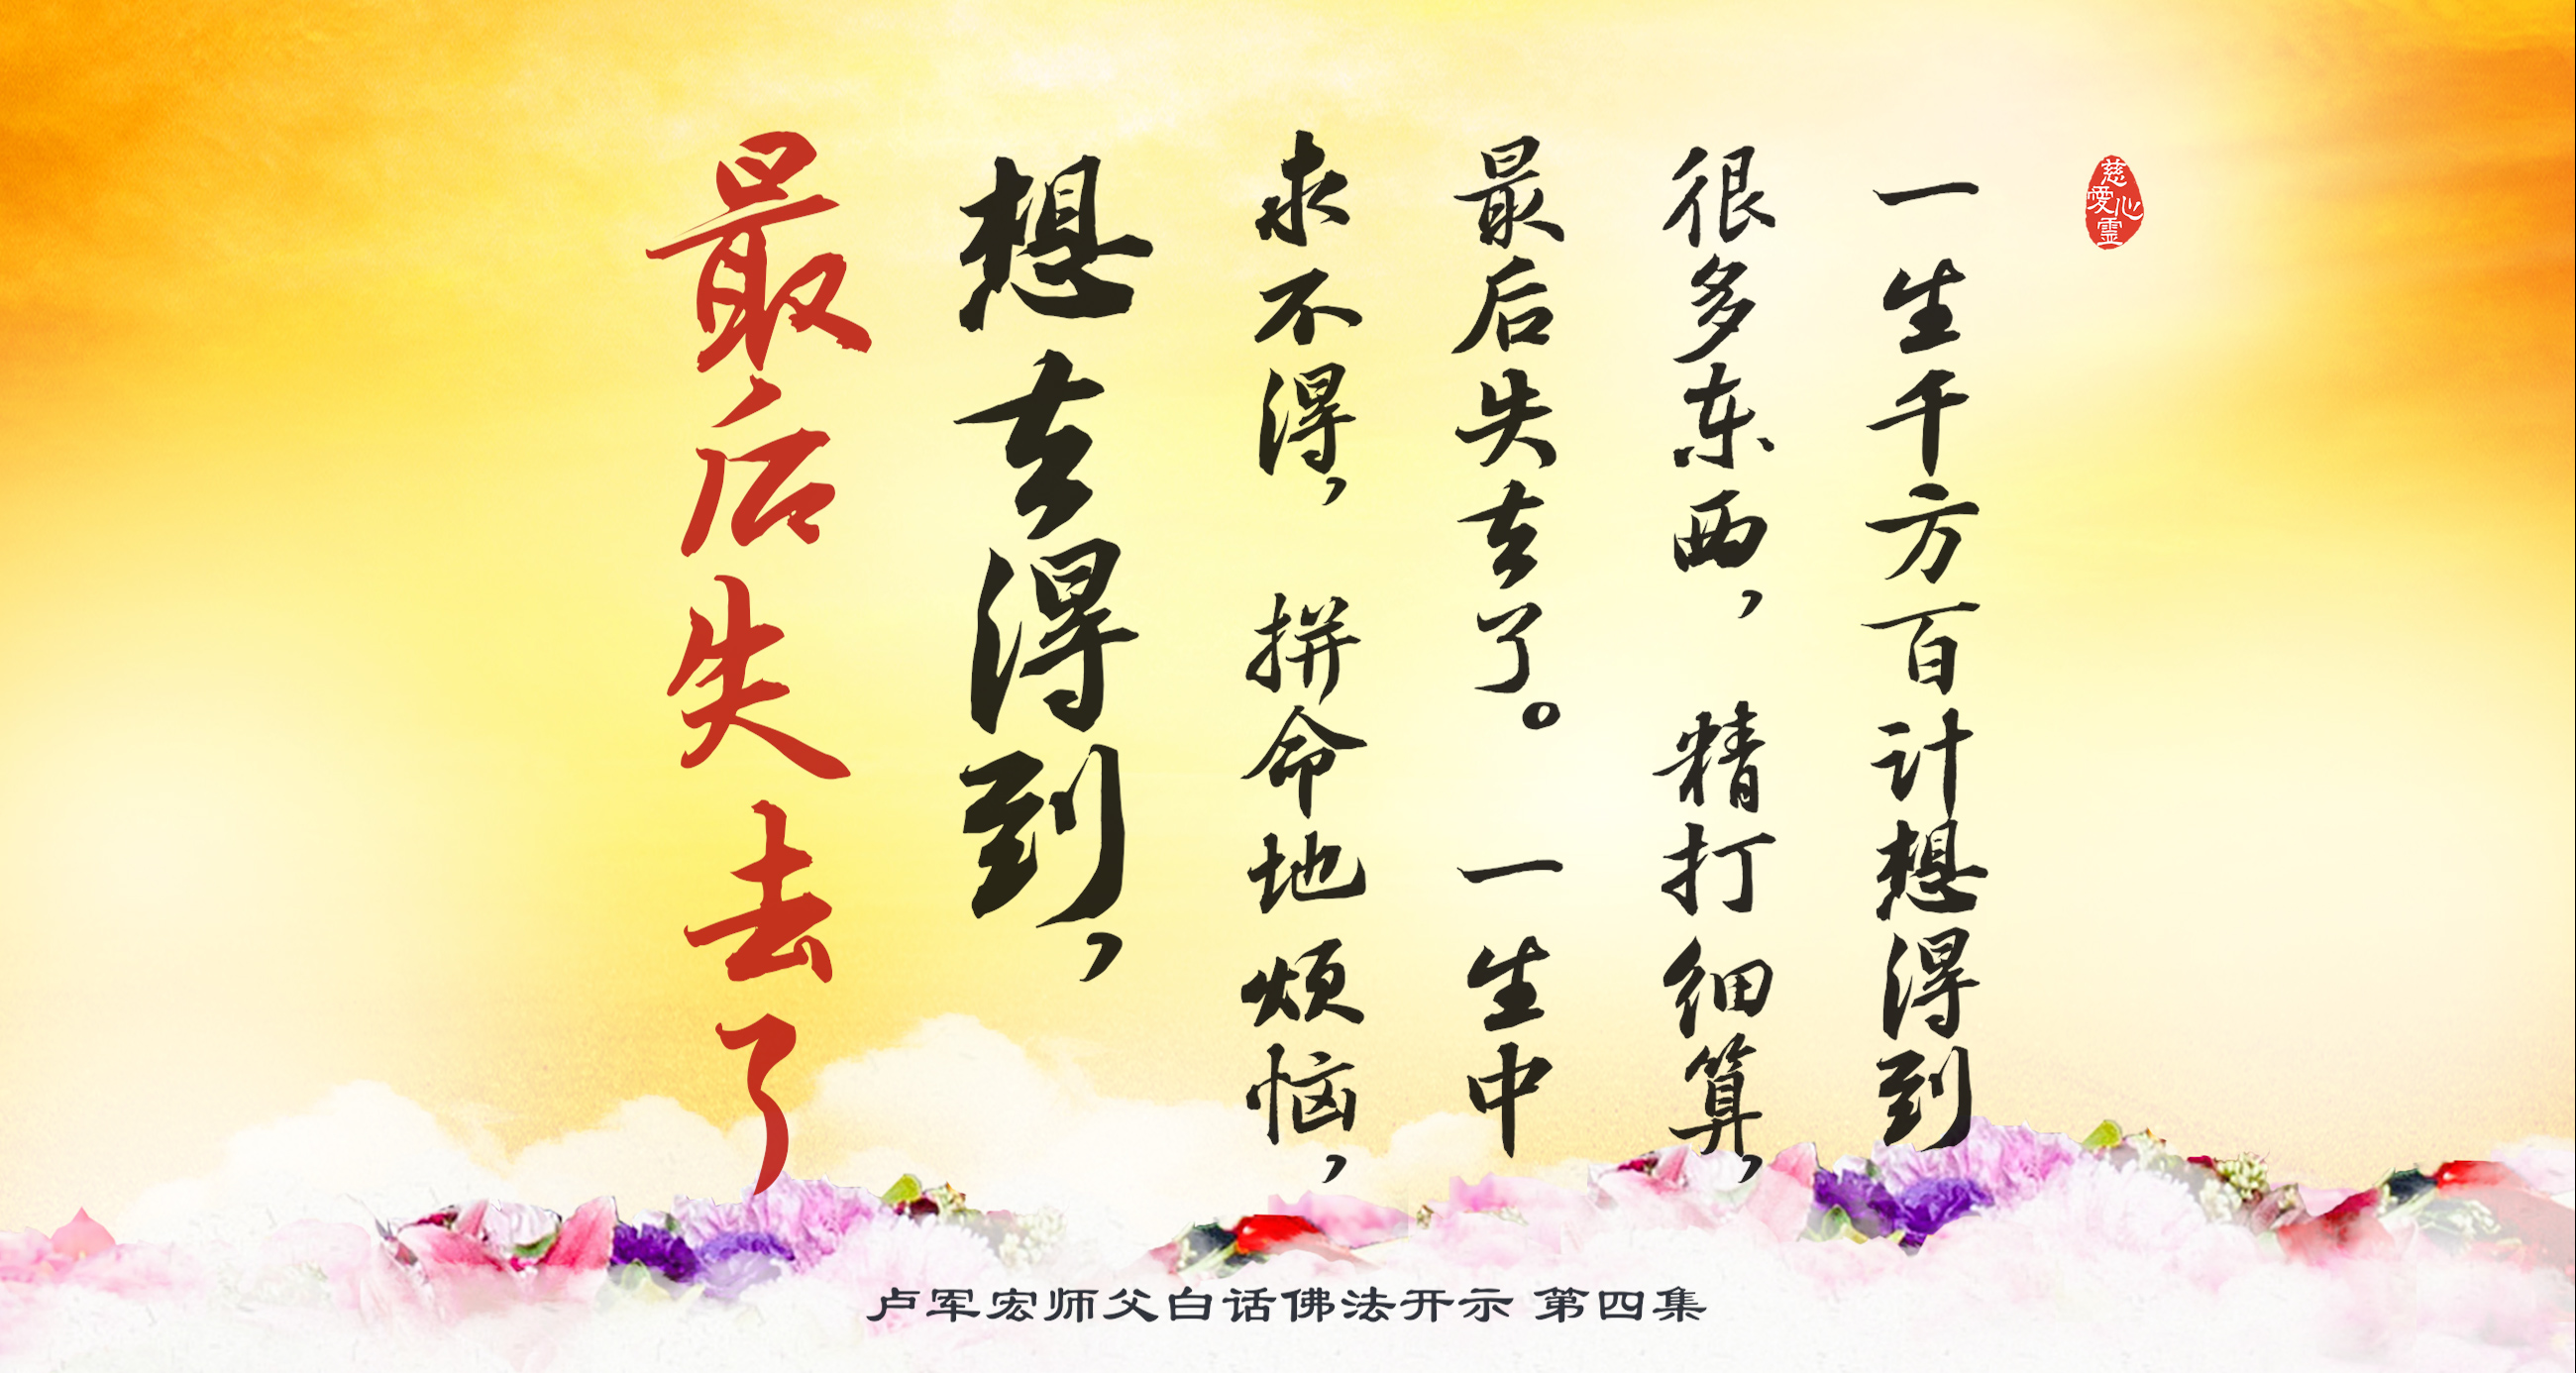 慈心愛靈
一生千方百计想得到
很多东西，精打细算，
最后失去了。一生中
求不得，拼命地烦恼，
想去得到，
最后失去了
卢军宏师父白话佛法开示 第四集